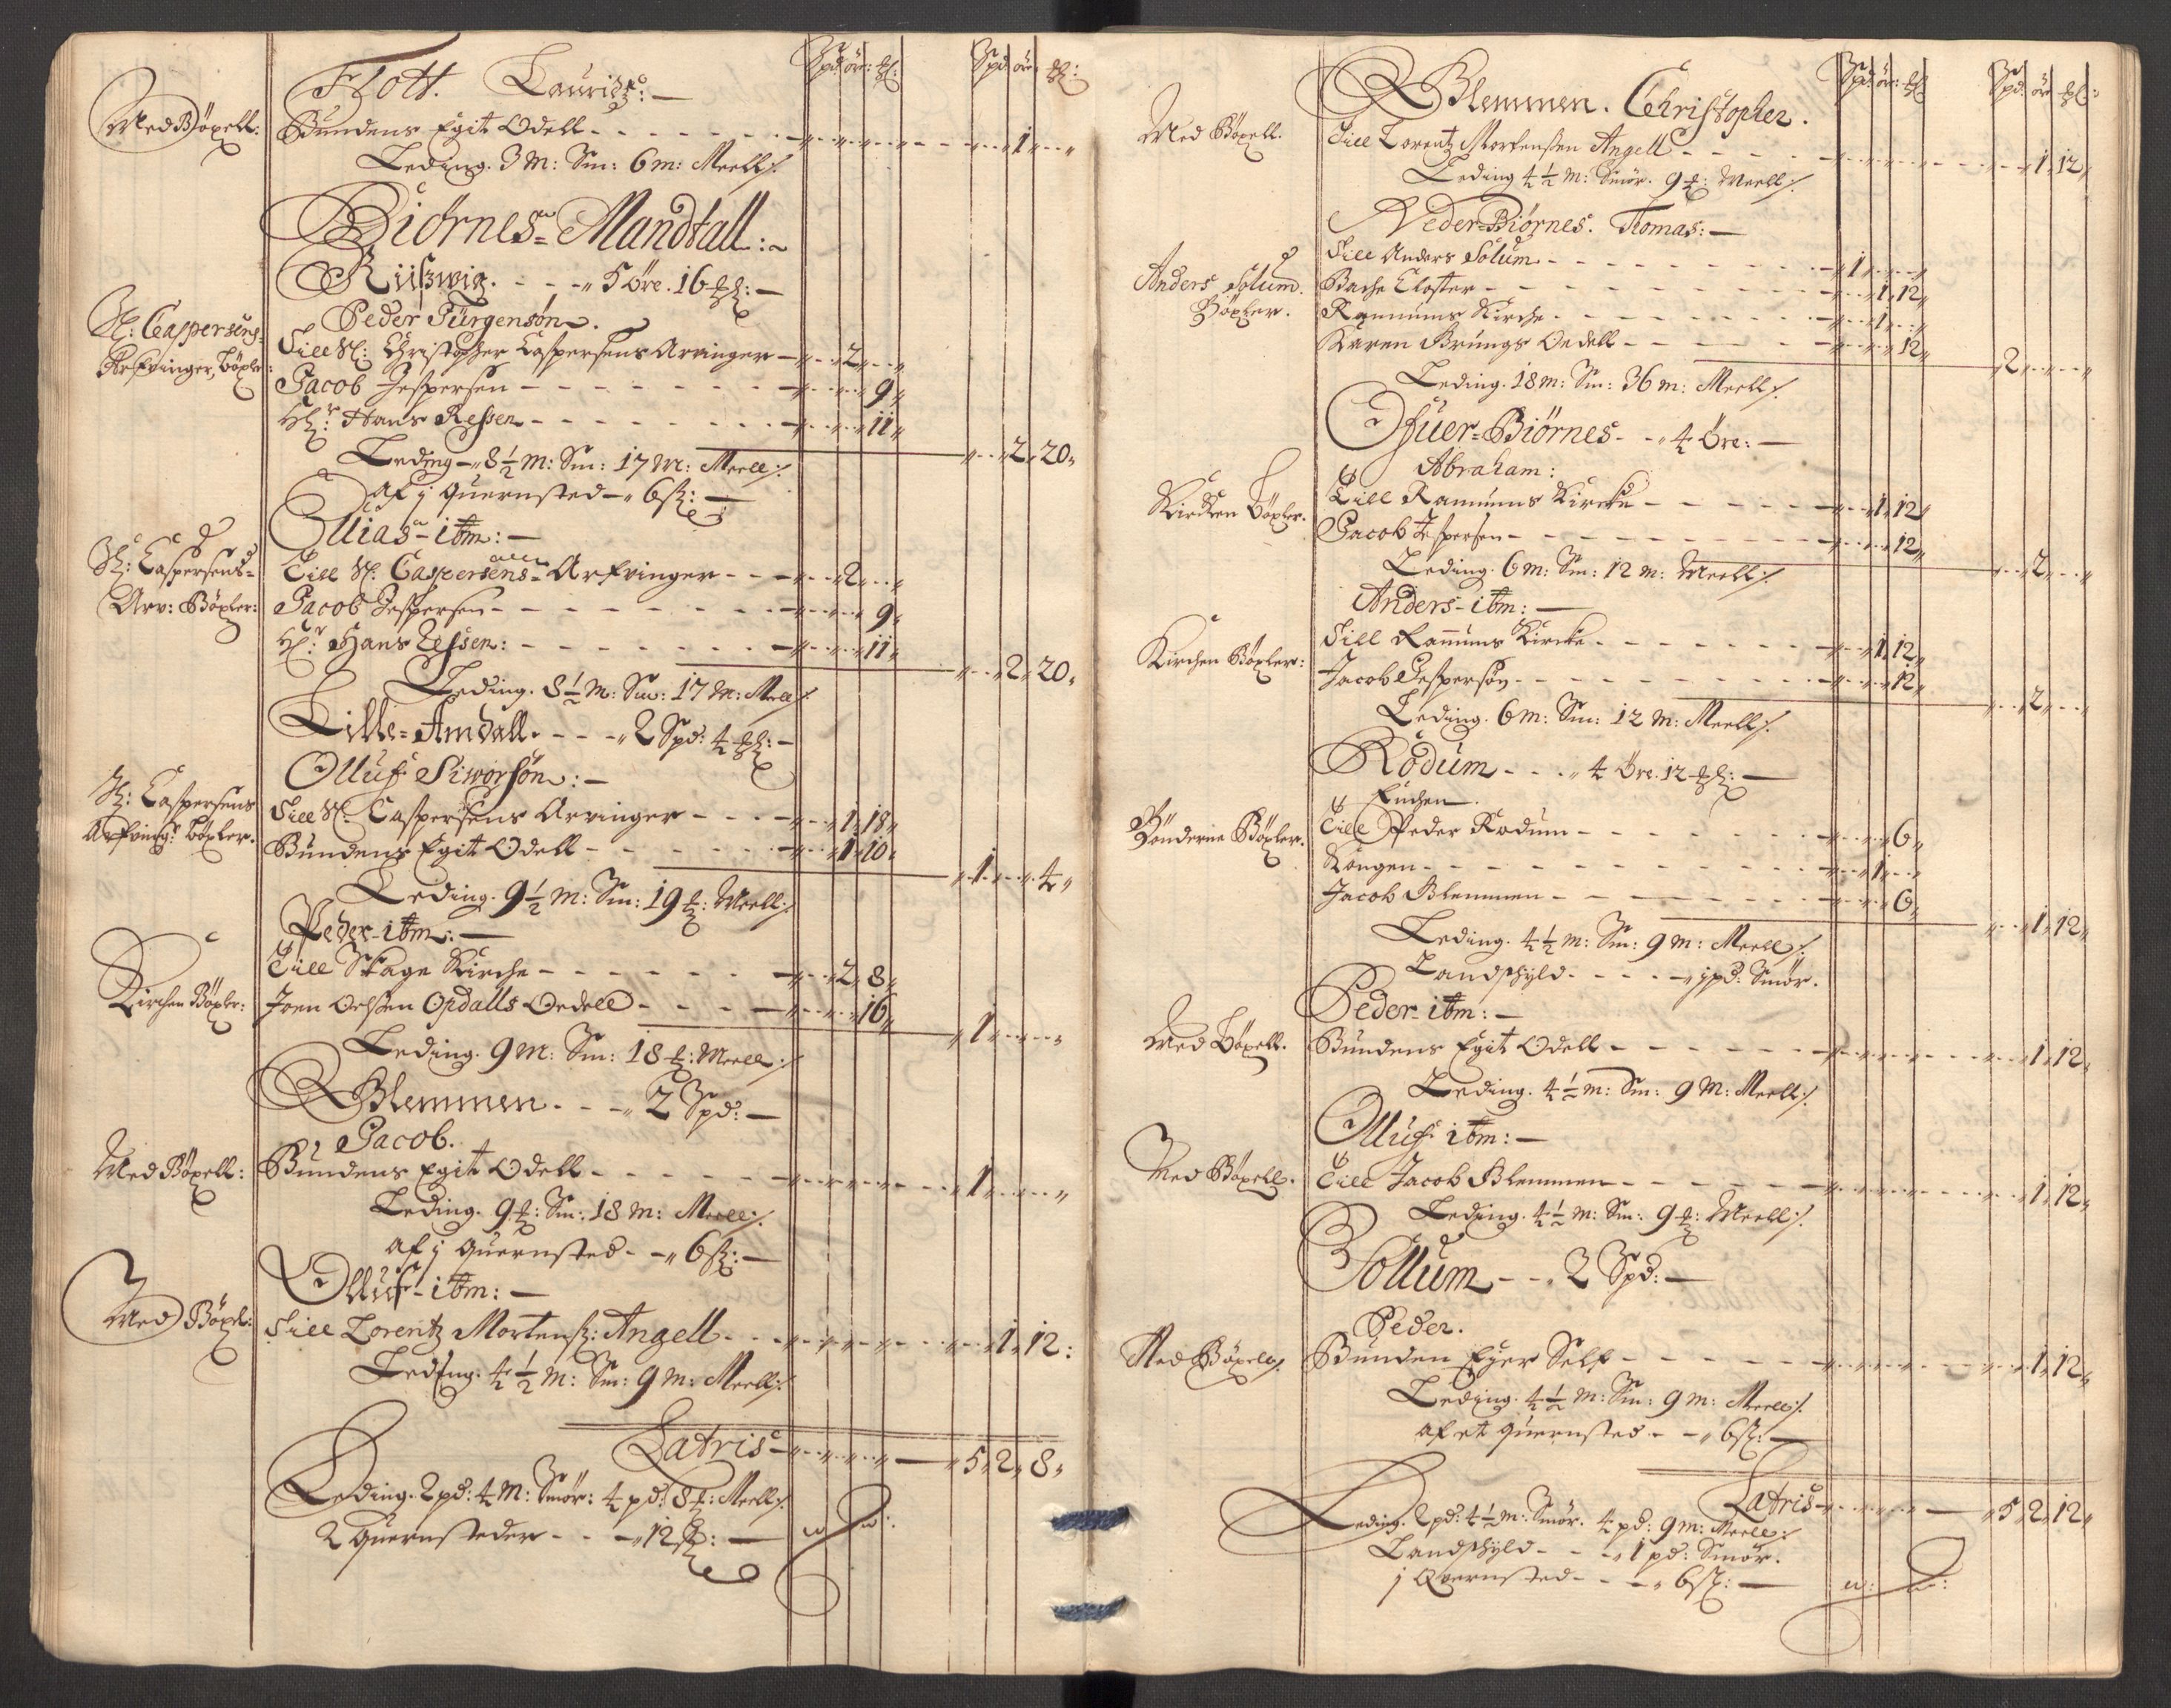 Spd: öre: 
Spd: öre: 
Flott. Lauridz:
Med Böxell: Bundens Egit Odell - - - 1
Leding. 3 m: Sm: 6 m: Meell:/
Biörnes=Mandtall:
Riiszwig. - - 5 öre. 16
Peder Jürgensøn.
Sl: Caspersens Arfvinger, böxler: Till Sl: Christopher Caspersens Arvinger - 2
Jacob Jespersen - - - 9
Hr: Hans Ressen - - - 11
Leding - 8½ m: Sm: 17 m: Meell:/ 2 20
af j Quernsted - 6 s:
Elias - itm:
Sl: Caspersens Arv: Böxler: Till Sl. Caspersens Arfvinger - - 2
Jacob Jespersen - - - 9
Hr: Hans Ressen: - - - 11
Leding. 8½ m: Sm: 17 m: Meel:/ 2 20
Lille=Amdall. - - 2 Spd: 4
Olluf Siworsøn:
Sl: Caspersens Arfving: böxler. Till Sl. Caspersens Arvinger - - 1 18
Bundens Egit Odell - - - 1 10
Leding. 9½ m: Sm: 19 : Meell:/ 1 4
Peder - itm:
Kirchen Böxler: Till Skage Kirche - - - 2 8
Joen Oelsen Opdalls Oedell - - - 16
Leding. 9 m: Sm: 18 : Meell:/ 1
Blemmen. - - 2 Spd:
Jacob.
Med Böxell: Bundens Egit Odell - - - 1
Leding. 9 : Sm: 18 m: Meell:/
af j Quernsted - - 6 s:
Olluf - itm:
Med Böxel: Till Lorentz Mortens: Angell - - 1 12:
Leding. 4½ m: Sm: 9 m: Meell:/
Latris - 5 2 8
Leding. 2 pd: 4 m: Smör: 4 pd: 8 : Meell:/
2 Quernsteder - - 12 s:
Spd: ör: 
Spd: öre 
Blemmen. Christopher.
Med Böxell. Till Lorentz Mortensen Angell - - 1 12
Leding 4½ m: Smör. 9 : Meell:/
Neder=Biörnes. Tomas:
Till Anders Solum - - - 1
Anders Solum Böxler. Bache Closter - - - 1 12
Rannums Kirche. - - - 1
Karen Brungs Oedell - - - 12
Leding. 18 m: Sm: 36 m: Meell:/ 2
Ofuer=Biörnes - 4 öre:
Abraham:
Kirchen Böxler. Till Rannums Kircke - - - 1 12
Jacob Jespersen - - - 12
Leding. 6 m: Sm: 12 m: Meell:/ 2
Anders - itm:
Kirchen Böxler: Till Rannums Kircke. - - - 1 12
Jacob Jespersøn - - - 12
Leding. 6 m: Sm: 12 m: Meell:/ 2
Rödum - - 4 öre. 12
Enchen.
Bönderne Böxler. Till Peder Rodum - - - 6
Kongen - - - 1
Jacob Blemmen - - - 6
Leding. 4½ m: Sm: 9 m: Meell:/ 1 12
Landschyld - - - 1 pd: Smör.
Peder - itm:
Med Böxell. Bundens Egit Odell - - - 1 12
Leding. 4½ m: Sm: 9 m: Meell:/
Olluf itm:
Med Böxell. Till Jacob Blemmen - - - 1 12
Leding. 4½ m: Sm: 9 : Meell:/
Sollum - - 2 Spd:
Peder.
Med Böxell. Bunden Eyer Self - - - 1 12
Leding. 4½ m: Sm: 9 m: Meell:/
af et Quernsted - - 6 s:
Latris - 5 2 12
Leding. 2 pd: 4½ m: Smör. 4 pd: 9 m: Meell:/
Landschyld - - 1 pd: Smör.
j Qvernsted - - 6 s: